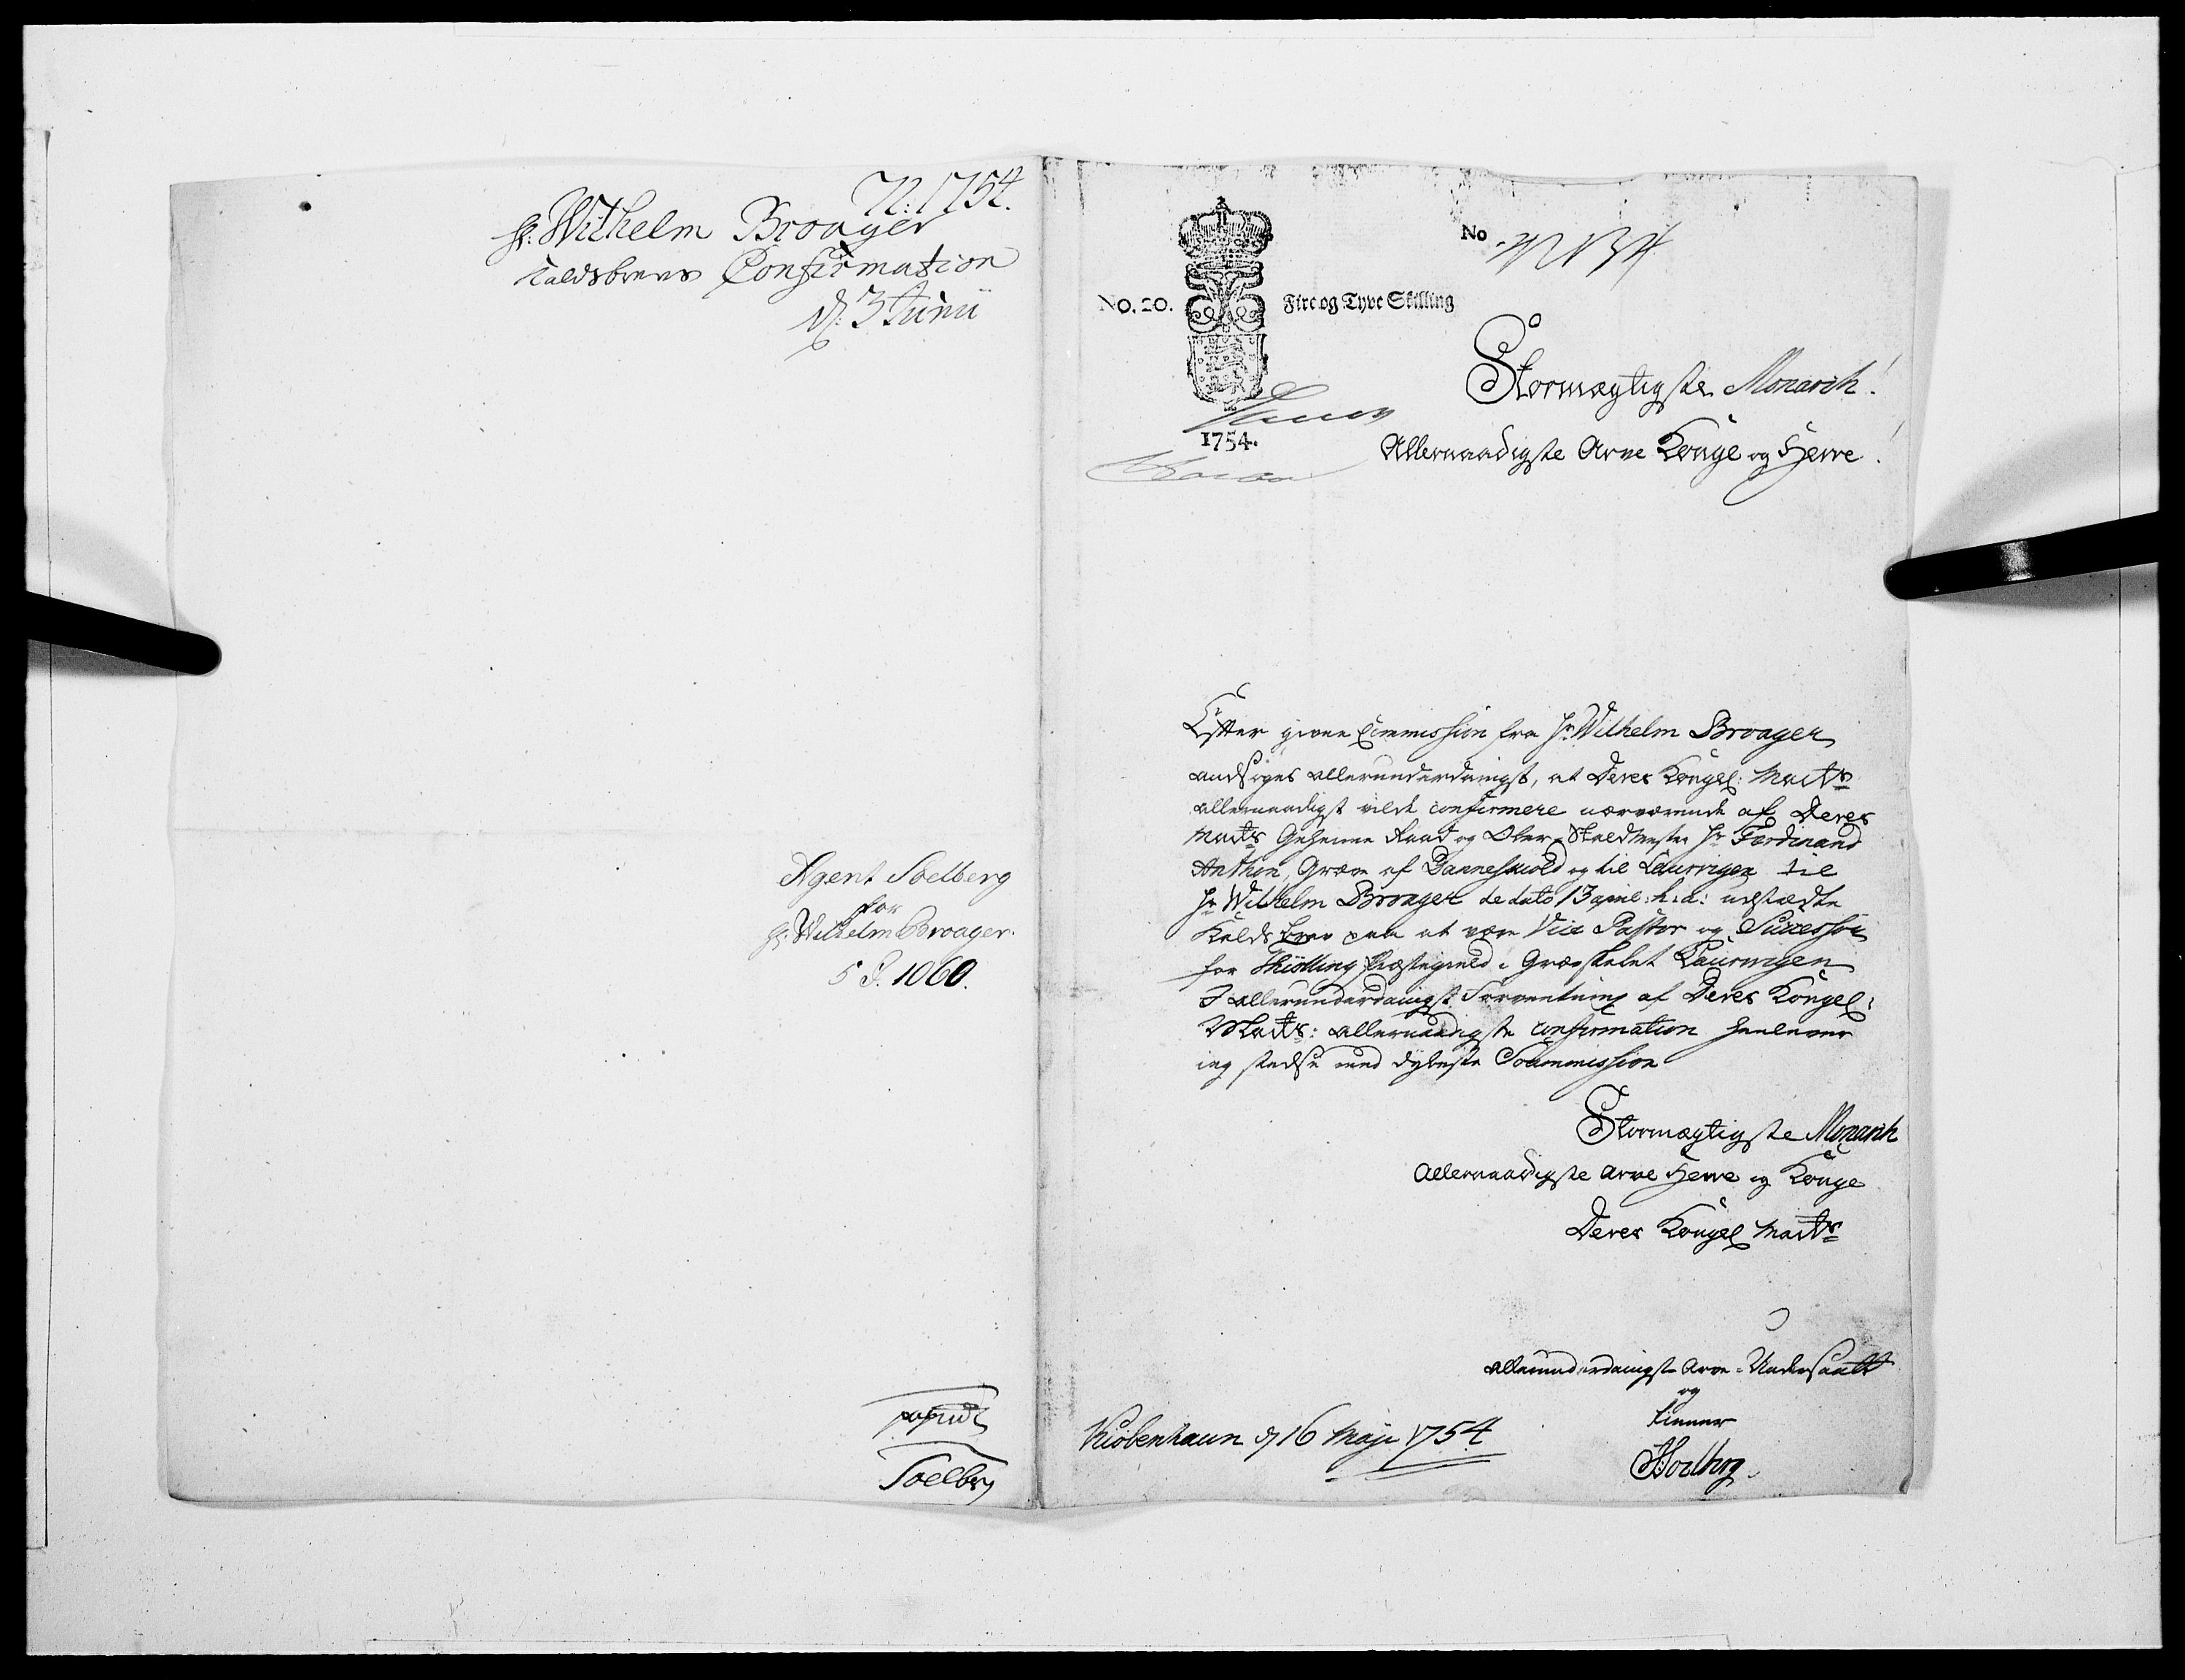 N: 1754.
Hr: Wilhelm Broager
Kaldsbrevs Confirmation
d: 3 Junii
Agent Soelberg
for
Hr: Wilhelm Broager.
5 S. 1060.
Soelberg
No
No. 20.
Fire og Tyve Skilling
1754.
Stormægtigste Monarch!
Allernaadigste Arve Konge og Herre!
Efter given Commission fra Hr Wilhelm Broager
andsøges allerunderdanigst, at Deres Kongel: Maits
allernaadigst vilde confirmere nærværende af Deres
Maits Geheime Raad og Ober-Staldmester Hr Ferdinand
Anthon, Græve af Danneskiold og til Laurvigen til
Hr Wilhelm Broager de dato 13 april: h: a: udstædte
Kalds Brev paa at være Vice Pastor og Successor
for Thiølling Præstegield i Grævskabet Laurvigen
I allerunderdanigst Forventning af Deres Kongel:
Maits: allernaadigste confirmation henlever
ieg stedse med dybeste Soummission
Stormægtigste Monarch
Allernaadigste Arve Herre og Konge
Deres Kongel Maits
allerunderdanigst Arve-Undersaatt
og
tienner
HSoelberg
Kiøbenhavn d 16 Maji 1754